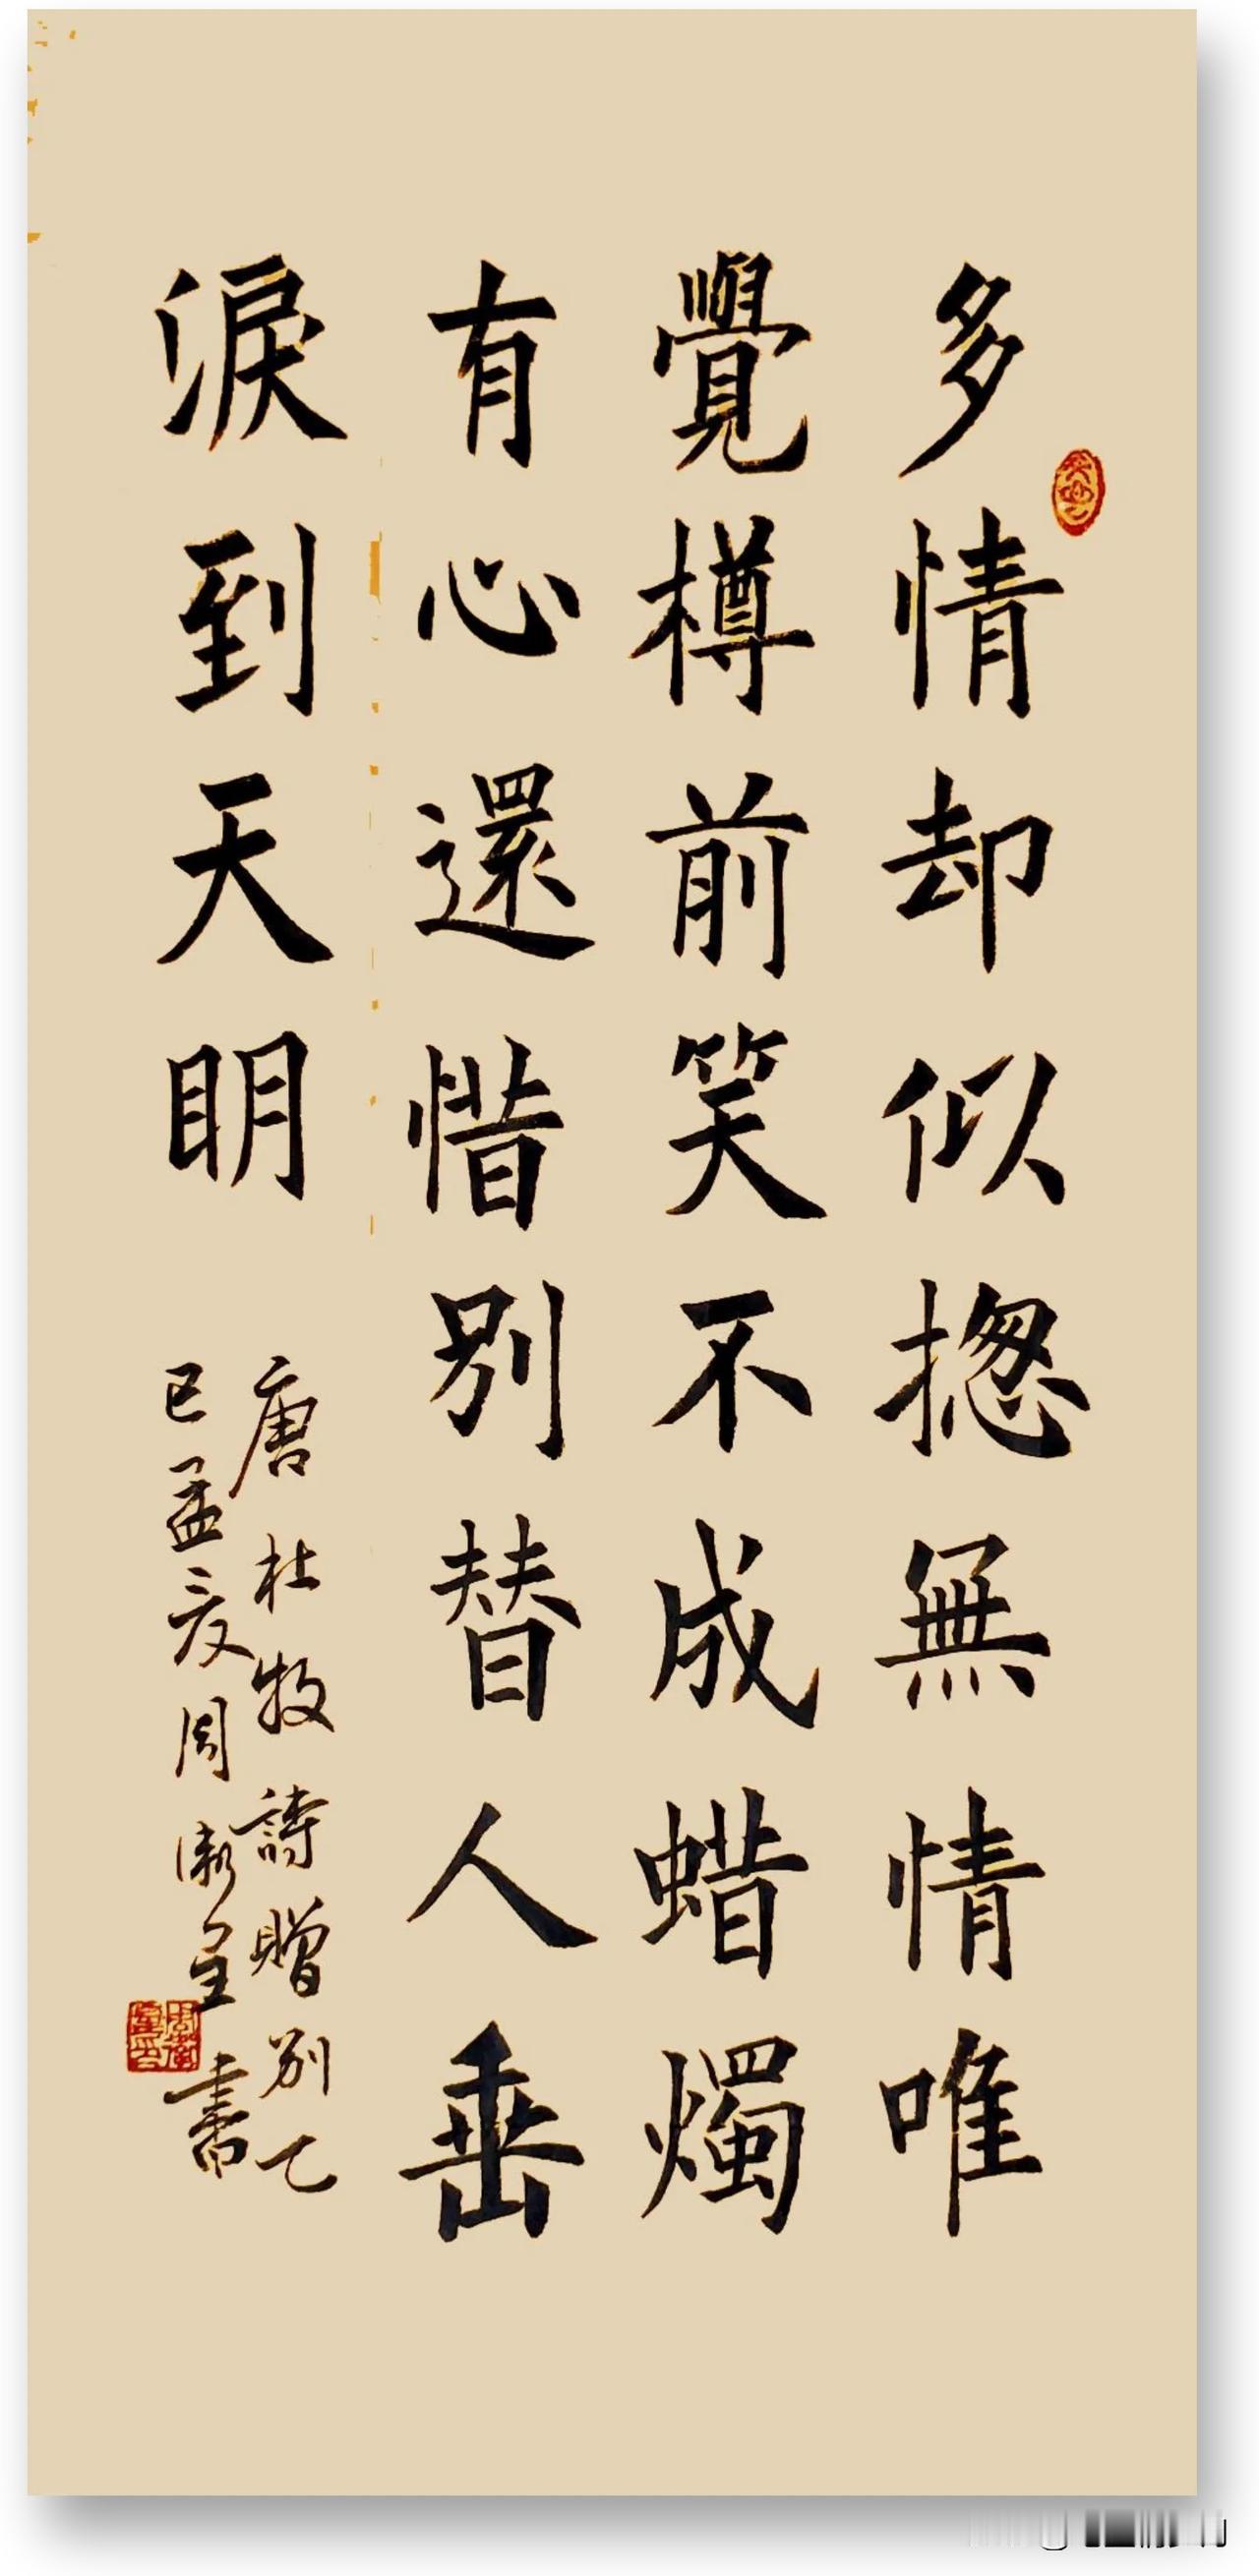 多情却似揔無情唯
覺樽前笑不成蜡燭
有心還惜别替人垂
淚到天明
唐杜牧詩贈别乙
巳孟夏周漱皇書